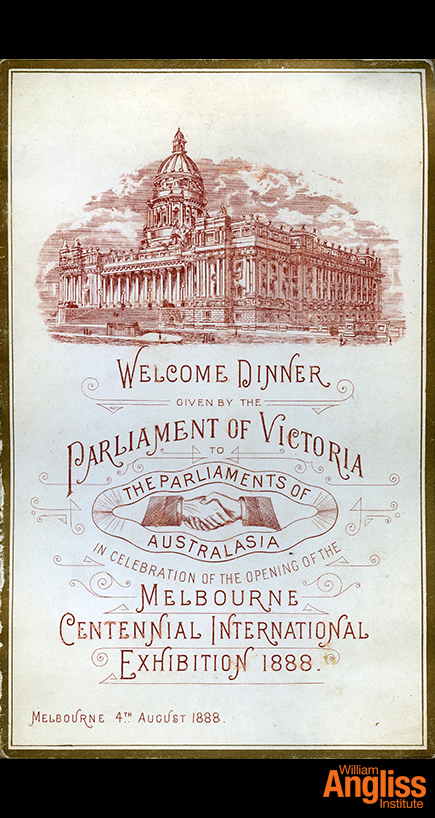 Welcome Dinner
GIVEN BY THE
Parliament of Victoria
TO
THE PARLIAMENTS OF
AUSTRALASIA
IN CELEBRATION OF THE OPENING OF THE
Melbourne
Centennial International
Exhibition 1888.
Melbourne 4TH August 1888.
William
Angliss
Institute